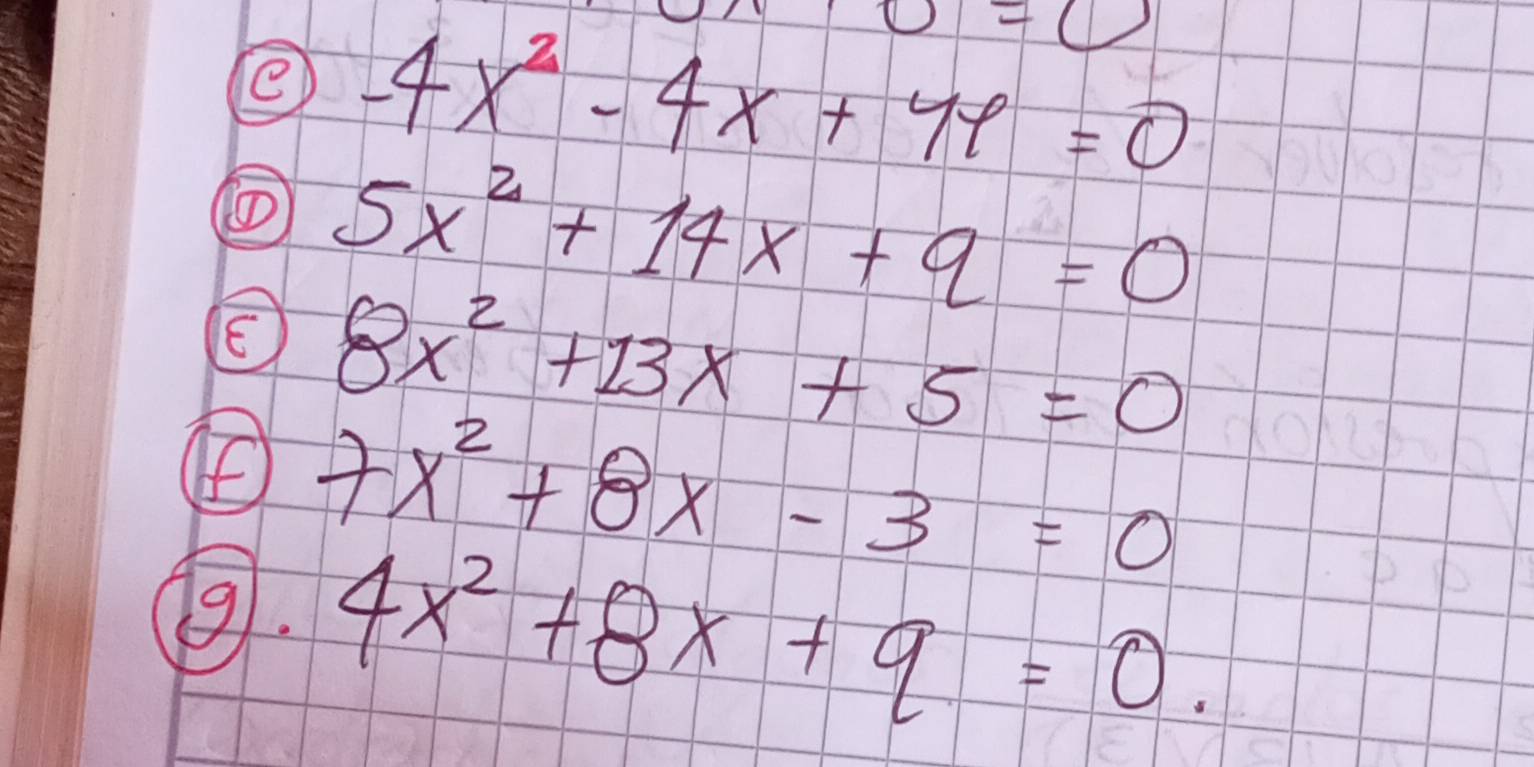 ⓒ -4x² - 4x + 44 = 0
Ⓓ 5x² + 14x + 9 = 0
Ⓔ 8x² + 13x + 5 = 0
ⓕ 7x² + 8x - 3 = 0
ⓖ. 4x² + 8x + 9 = 0.